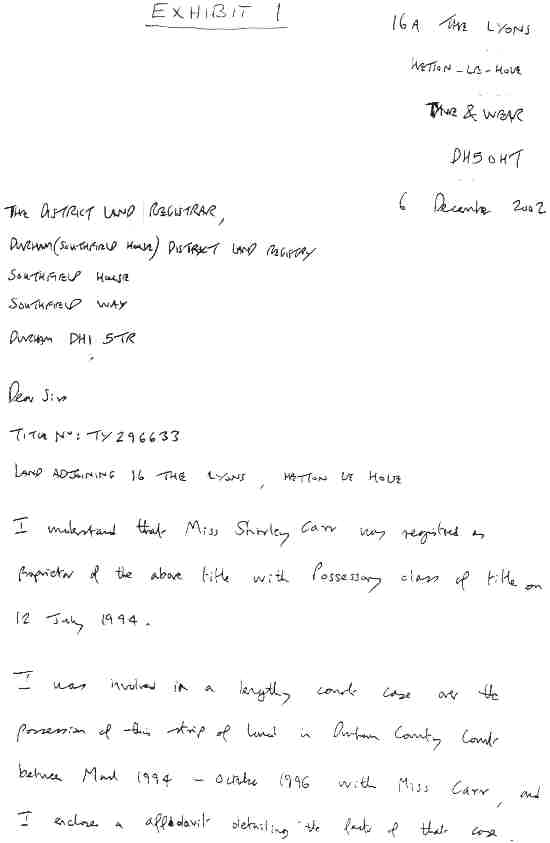 EXHIBIT 1
16A THE LYONS
HETTON-LE-HOLE
TYNE & WEAR
DH5 0HT
6 December 2002
THE DISTRICT LAND REGISTRAR,
DURHAM (SOUTHFIELD HOUSE) DISTRICT LAND REGISTRY
SOUTHFIELD HOUSE
SOUTHFIELD WAY
DURHAM DH1 5TR
Dear Sirs
TITLE No: TY296633
LAND ADJOINING 16 THE LYONS, HETTON LE HOLE
I understand that Miss Shirley Carr was registered as
Proprietor of the above title with Possessory class of title on
12 July 1994.
I was involved in a lengthy court case over the
possession of this strip of land in Durham County Court
between March 1994 - October 1996 with Miss Carr, and
I enclose a affidavit detailing the facts of that case.